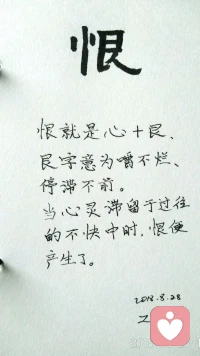 恨
恨就是心+艮、
艮字意为嚼不烂、
停滞不前。
当心灵滞留于过往
的不快中时,恨便
产生了。
2018.8.28